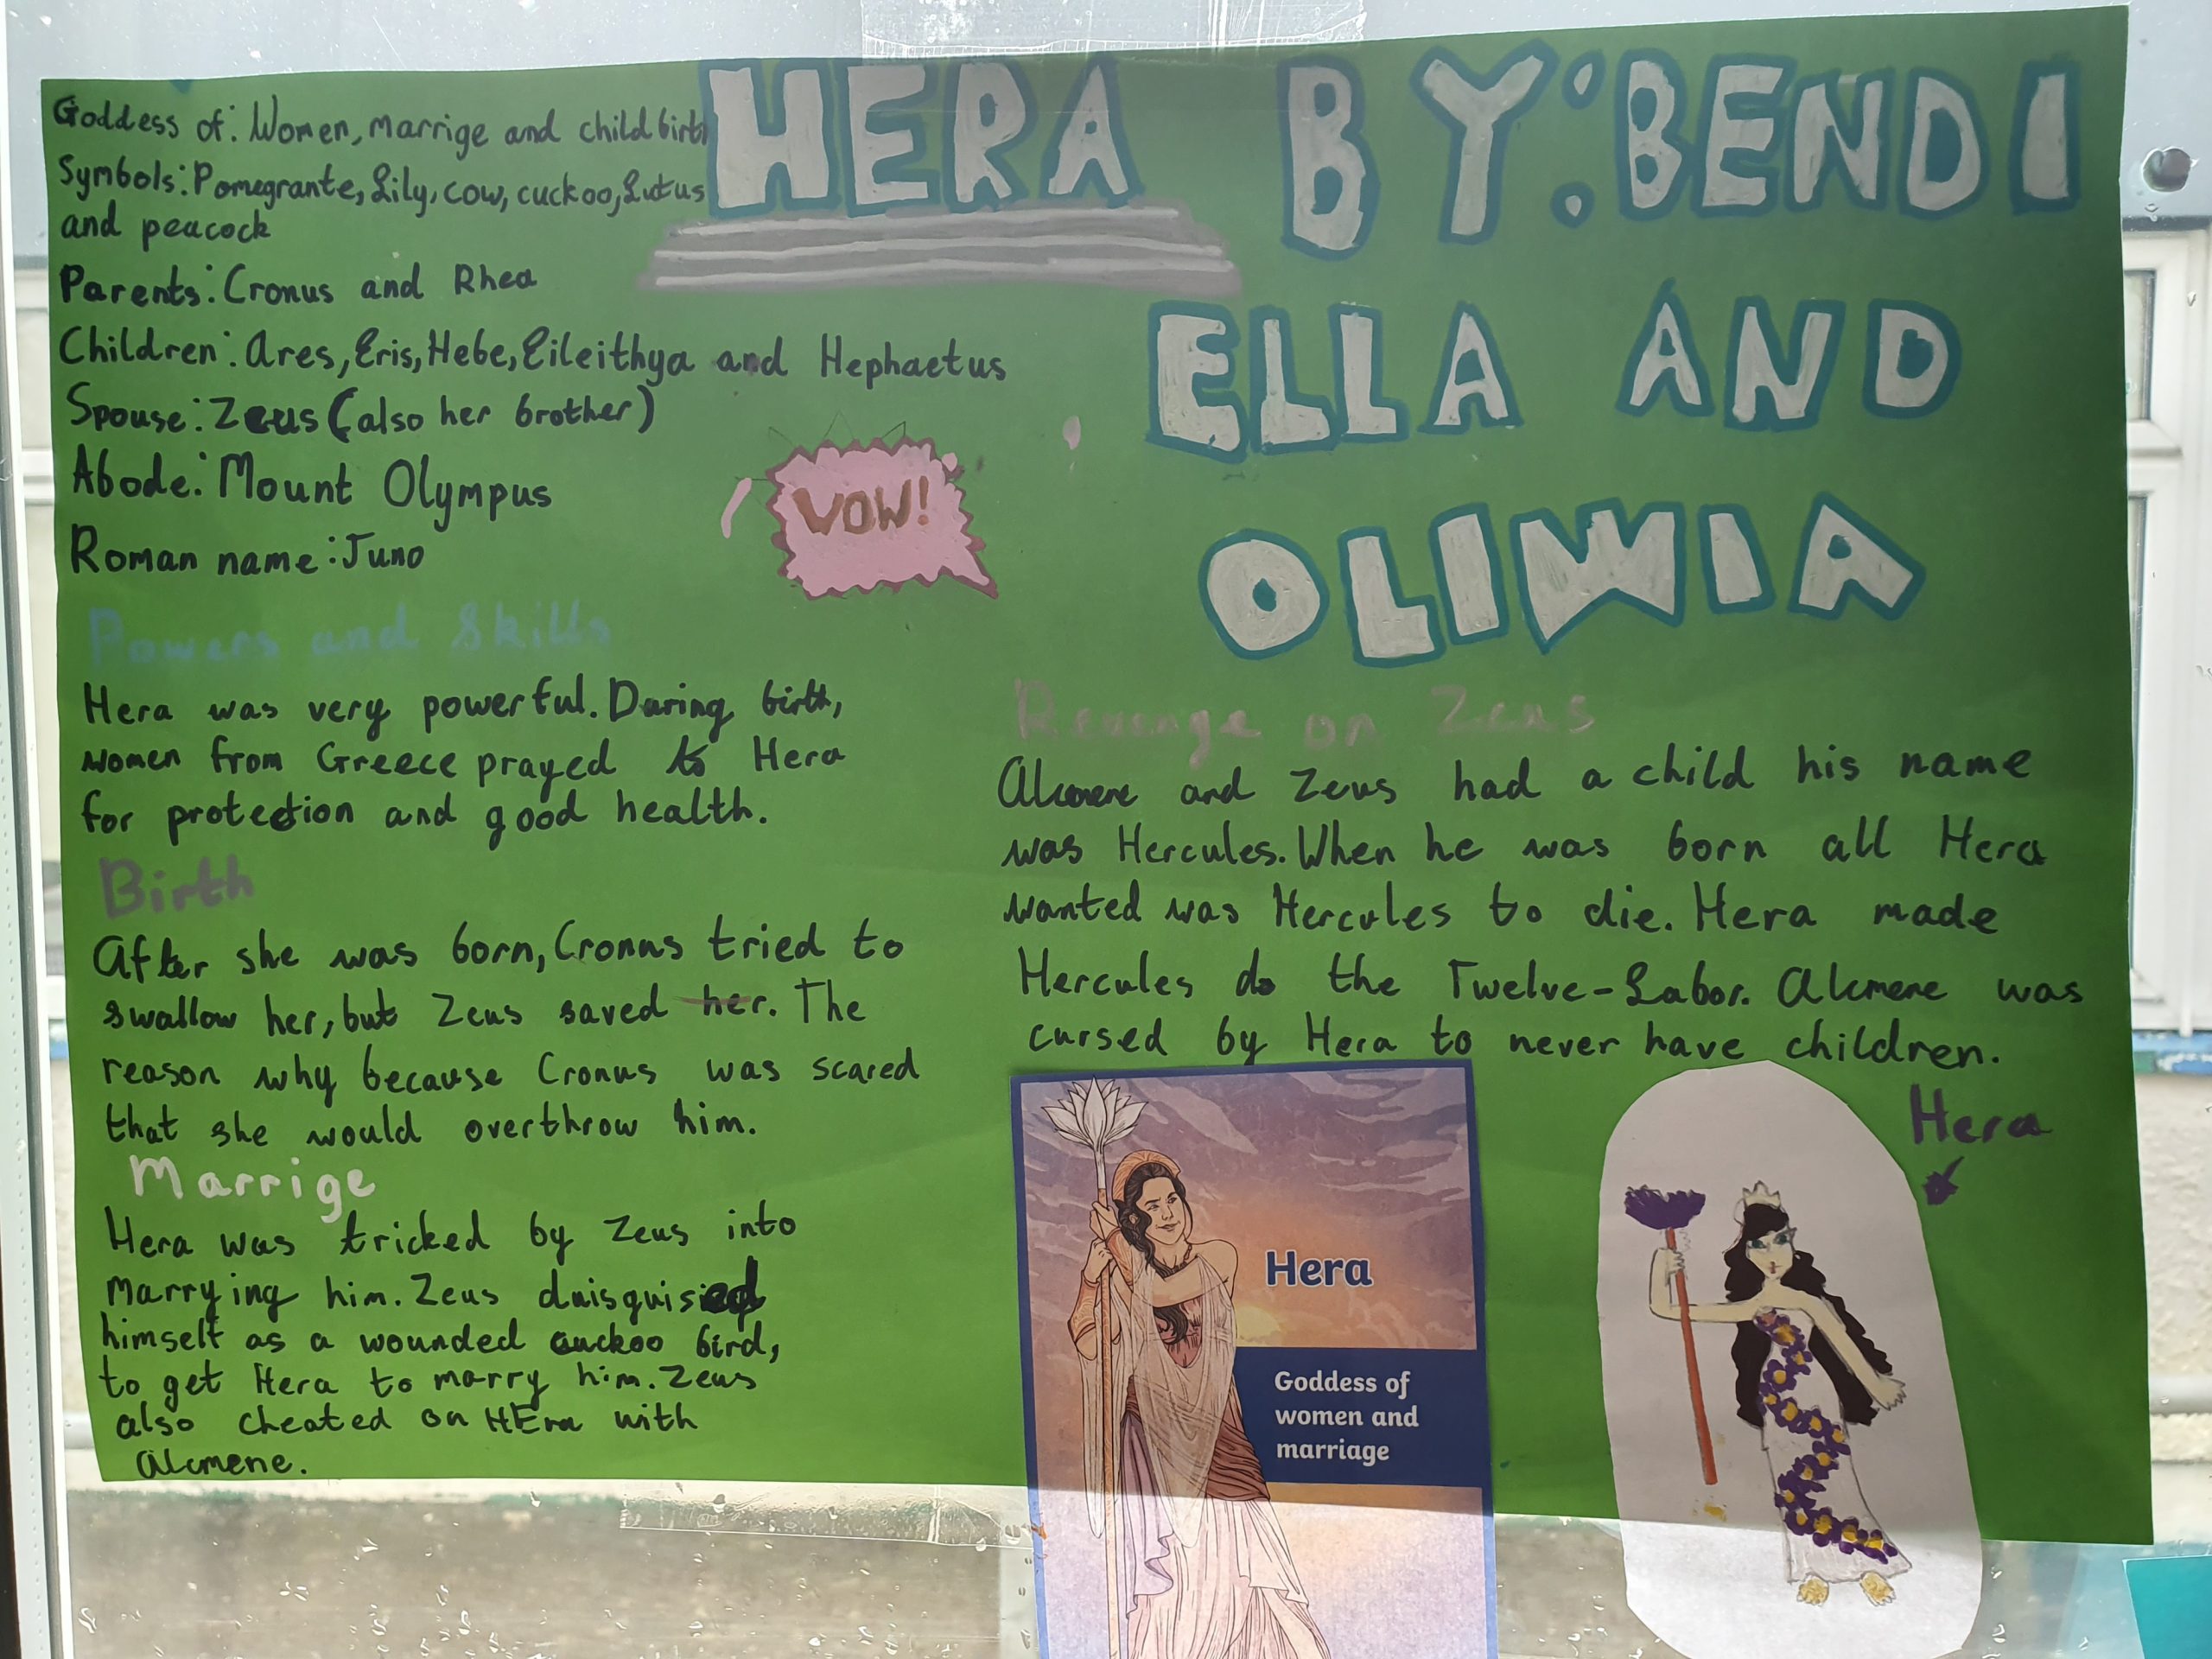 HERA BY: BENDI
ELLA AND
OLIWIA
Goddess of: Women, marrige and child birth
Symbols: Pomegrante, Lily, cow, cuckoo, Lutus
and peacock
Parents: Cronus and Rhea
Children: Ares, Eris, Hebe, Eileithya and Hephaetus
Spouse: Zeus (also her brother)
Abode: Mount Olympus
Roman name: Juno
VOW!
Powers and Skills
Hera was very powerful. During birth,
women from Greece prayed to Hera
for protection and good health.
Birth
After she was born, Cronus tried to
swallow her, but Zeus saved her. The
reason why because Cronus was scared
that she would overthrow him.
Marrige
Hera was tricked by Zeus into
marrying him. Zeus duisguised
himself as a wounded cuckoo bird,
to get Hera to marry him. Zeus
also cheated on HEra with
Alcmene.
Revenge on Zeus
Alcmene and Zeus had a child his name
was Hercules. When he was born all Hera
wanted was Hercules to die. Hera made
Hercules do the Twelve-Labor. Alcmene was
cursed by Hera to never have children.
Hera
Goddess of
women and
marriage
Hera